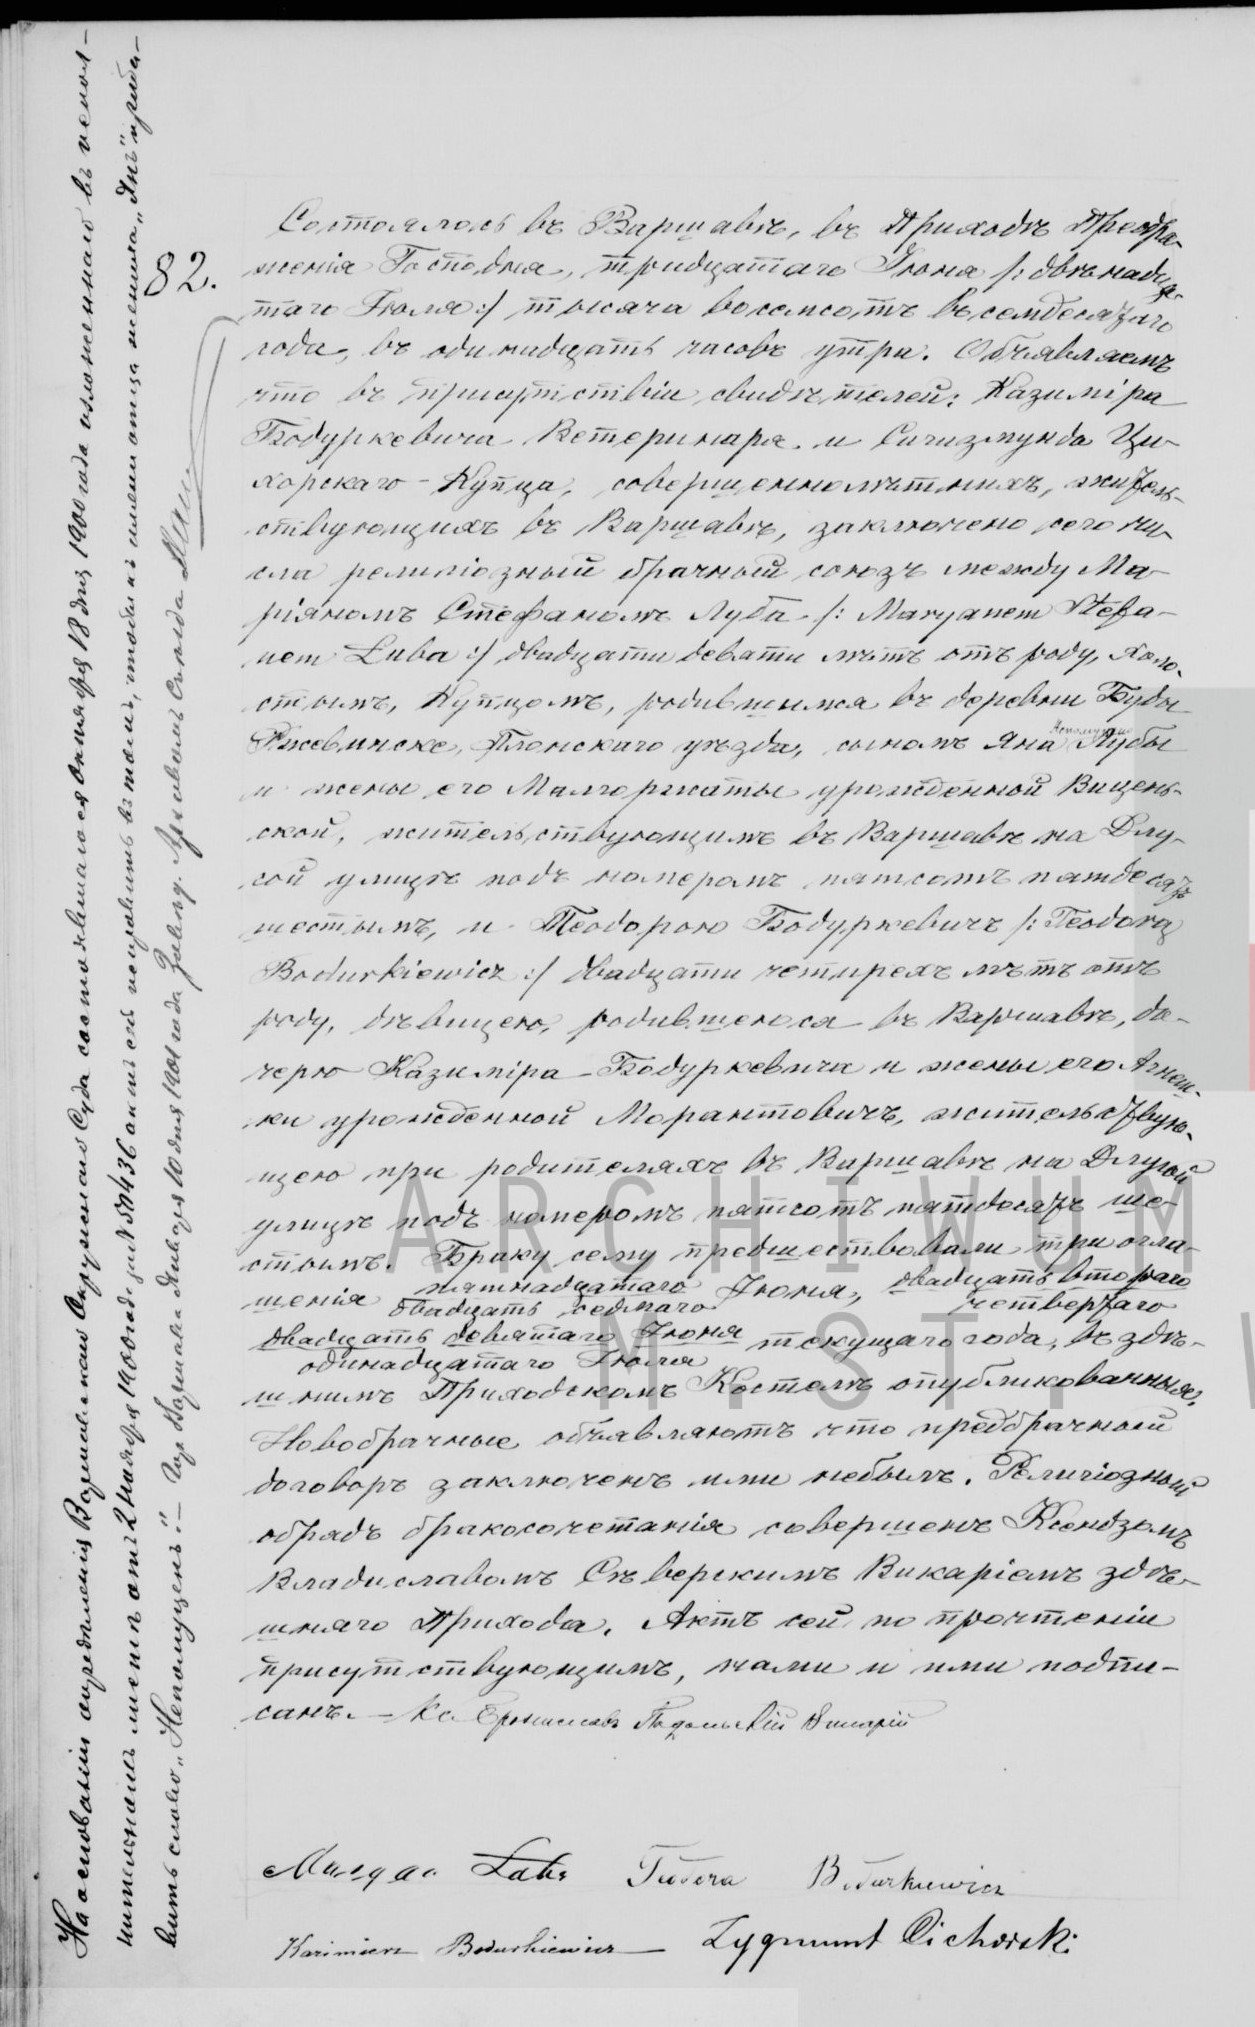 82.
Состоялось въ Варшавѣ, въ Приходѣ Преобра-
женія Господня, тридцатаго Іюня /: двѣнадца-
таго Іюля :/ тысяча восемсотъ восемдесятаго
года, въ одинадцать часовъ утра. Объявляемъ
что въ присутствіи свидѣтелей: Казиміра
Бодуркевича Ветеринара и Сигизмунда Ци-
хорскаго - Купца, совершеннолѣтнихъ, житель-
ствующихъ въ Варшавѣ, заключено сего чи-
сла религіозный брачный союзъ между Ма-
ріяномъ Стефаномъ Луба /: Maryanem Stefa-
nem Luba :/ двадцати девяти лѣтъ отъ роду, холо-
стымъ, Купцомъ, родившимся въ деревни Буды
Плонскаго уѣзда, сыномъ Яна Непомуцена Лубы
и жены его Малгоржаты урожденной Вицень-
ской, жительствующимъ въ Варшавѣ на Длу-
гой улицѣ подъ номеромъ пятсотъ пятдесятъ
шестымъ, и Теодорою Бодуркевичъ /: Teodorą
Bodurkiewicz :/ двадцати четырехъ лѣтъ отъ
роду, дѣвицею, родившеюся въ Варшавѣ, до-
черю Казиміра Бодуркевича и жены его Агнеш-
ки урожденной Морантовичъ, жительствую-
щею при родителяхъ въ Варшавѣ на Длугой
улицѣ подъ номеромъ пятсотъ пятдесятъ ше-
стымъ. Браку сему предшествовали три огла-
шенія пятнадцатаго Іюня, двадцать втораго
двадцать седмаго четвертаго
двадцать девятаго Іюня текущаго года, въ здѣ-
одинадцатаго Іюля
шнимъ Приходскомъ Костелѣ опубликованныя.
Новобрачные объявляютъ что предбрачный
договоръ заключенъ ими небылъ. Религіозный
обрядъ бракосочетанія совершенъ Ксендзомъ
Владиславомъ Сѣверскимъ Викаріемъ здѣ-
шняго Прихода. Актъ сей по прочтеніи
присутствующимъ, нами и ими подпи-
санъ. — Кс. Викарій
Maryan Luba Teodora Bodurkiewicz
Kazimierz Bodurkiewicz Zygmunt Cichorski
На основаніи опредѣленія Варшавскаго Окружнаго Суда состоявшагося Октября 18 дня 1900 года изложеннаго въ испол-
нительномъ листѣ отъ 2 Ноября 1900 года за № 50436 актъ сей исправить въ томъ, чтобы къ имени отца жениха „Янъ" приба-
вить слово „Непомуценъ". — Гор. Варшава Января 10 дня 1901 года
ARCHIWUM
M. ST. W